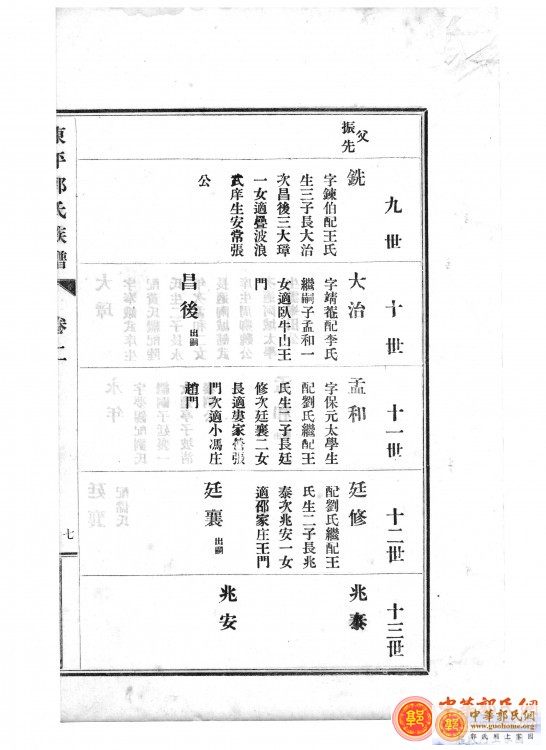 九世
父
振先
銑
字鍊伯配王氏
生三子長大治
次昌後三大璋
一女適疊波浪
武庠生安常張
公
十世
大治
字靖菴配李氏
繼嗣子孟和一
女適臥牛山王
門
昌後
出嗣
十一世
孟和
字保元太學生
配劉氏繼配王
氏生二子長廷
修次廷襄二女
長適婁家營張
門次適小馮庄
趙門
十二世
廷修
配劉氏繼配王
氏生二子長兆
泰次兆安一女
適邵家庄王門
廷襄
出嗣
十三世
兆泰
兆安
東平郭氏族譜
卷二
七
中華郭氏網
中華郭氏網
www.guohome.org
郭氏網上家園